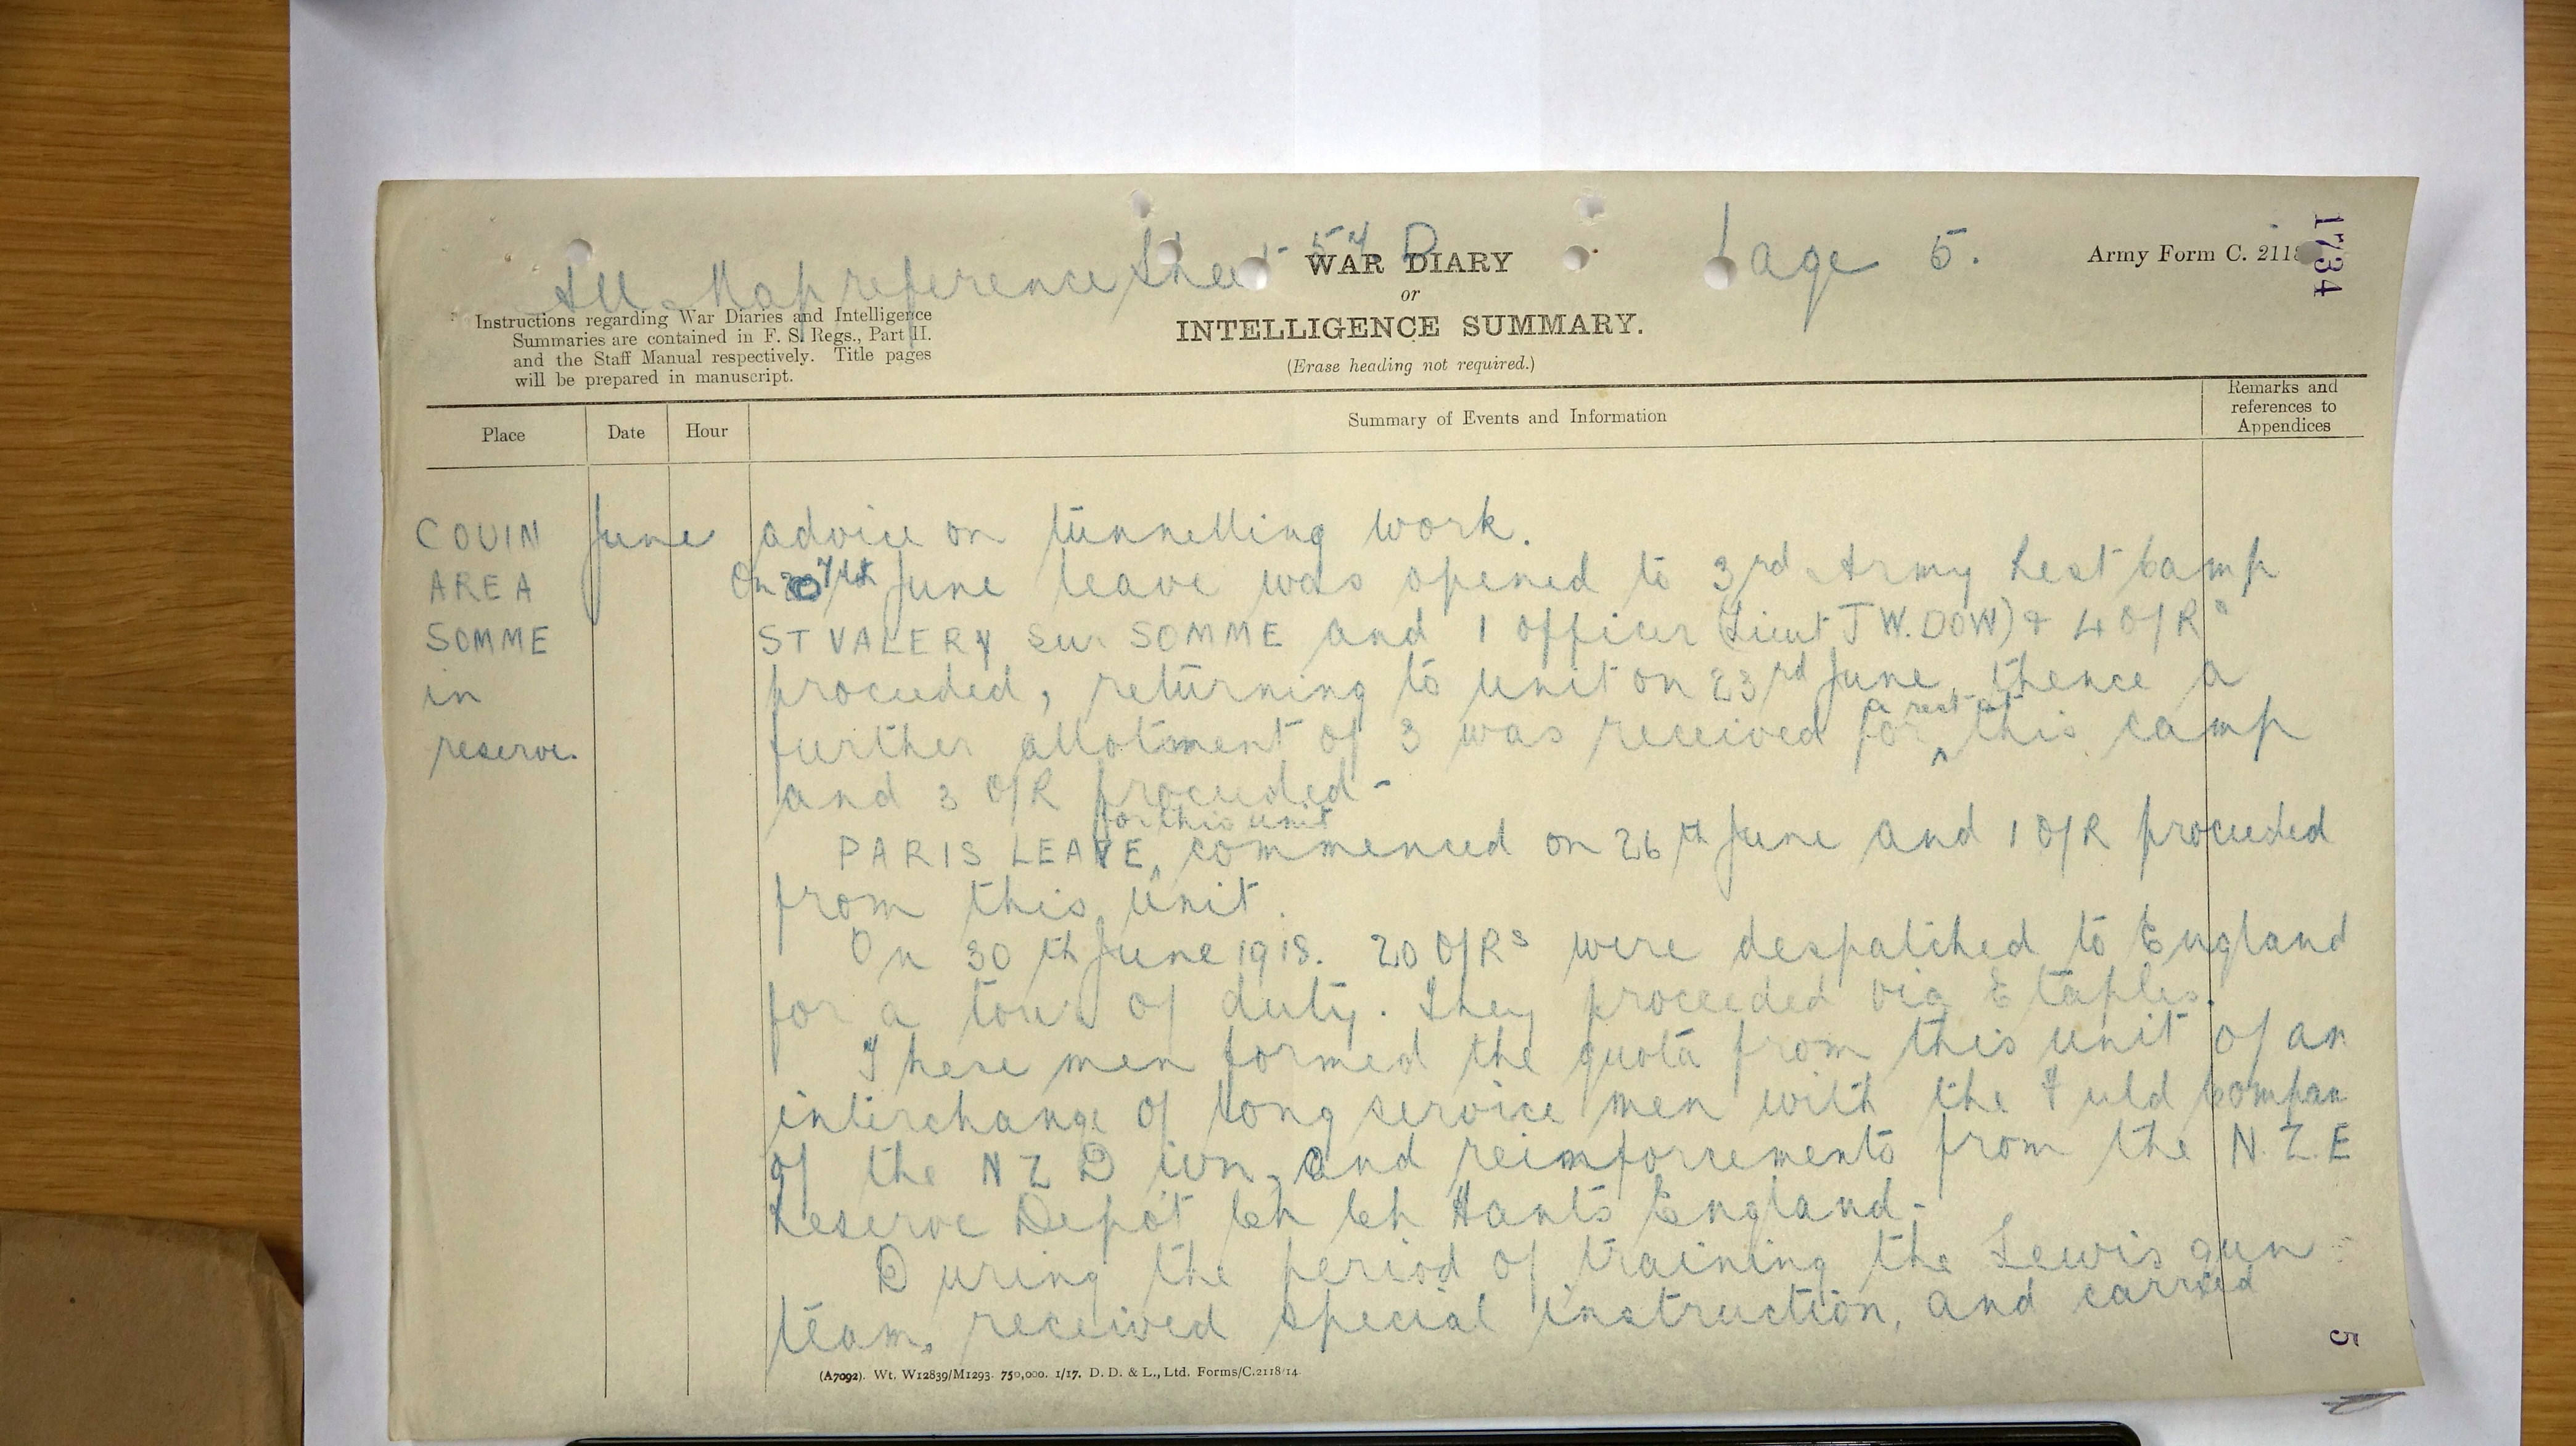 All Map reference Sheet 57 D
Page 5.
Army Form C. 2118
1734
WAR DIARY
or
INTELLIGENCE SUMMARY.
(Erase heading not required.)
Instructions regarding War Diaries and Intelligence
Summaries are contained in F. S. Regs., Part II.
and the Staff Manual respectively. Title pages
will be prepared in manuscript.
Place
Date
Hour
Summary of Events and Information
Remarks and
references to
Appendices
COUIN
AREA
SOMME
in
reserve.
June
advice on tunnelling work.
On 7th June leave was opened to 3rd Army Rest Camp
ST VALERY sur SOMME and 1 officer (Lieut J W. DOW) & 4 O/Rs
proceeded, returning to unit on 23rd June, thence a
further allotment of 3 was received for a rest at this camp
and 3 O/R proceeded -
PARIS LEAVE, for this unit commenced on 26th June and 1 O/R proceeded
from this unit.
On 30th June 1918. 20 O/Rs were despatched to England
for a tour of duty. They proceeded via Etaples.
These men formed the quota from this unit of an
interchange of long service men with the Field Compan
of the N Z Divn, and reimforcements from the N.Z.E
Reserve Depot Hants England -
During the period of training the Lewis gun
team, received special instruction, and carried
5
(A7092). Wt. W12839/M1293. 750,000. 1/17. D. D. & L., Ltd. Forms/C.2118/14.